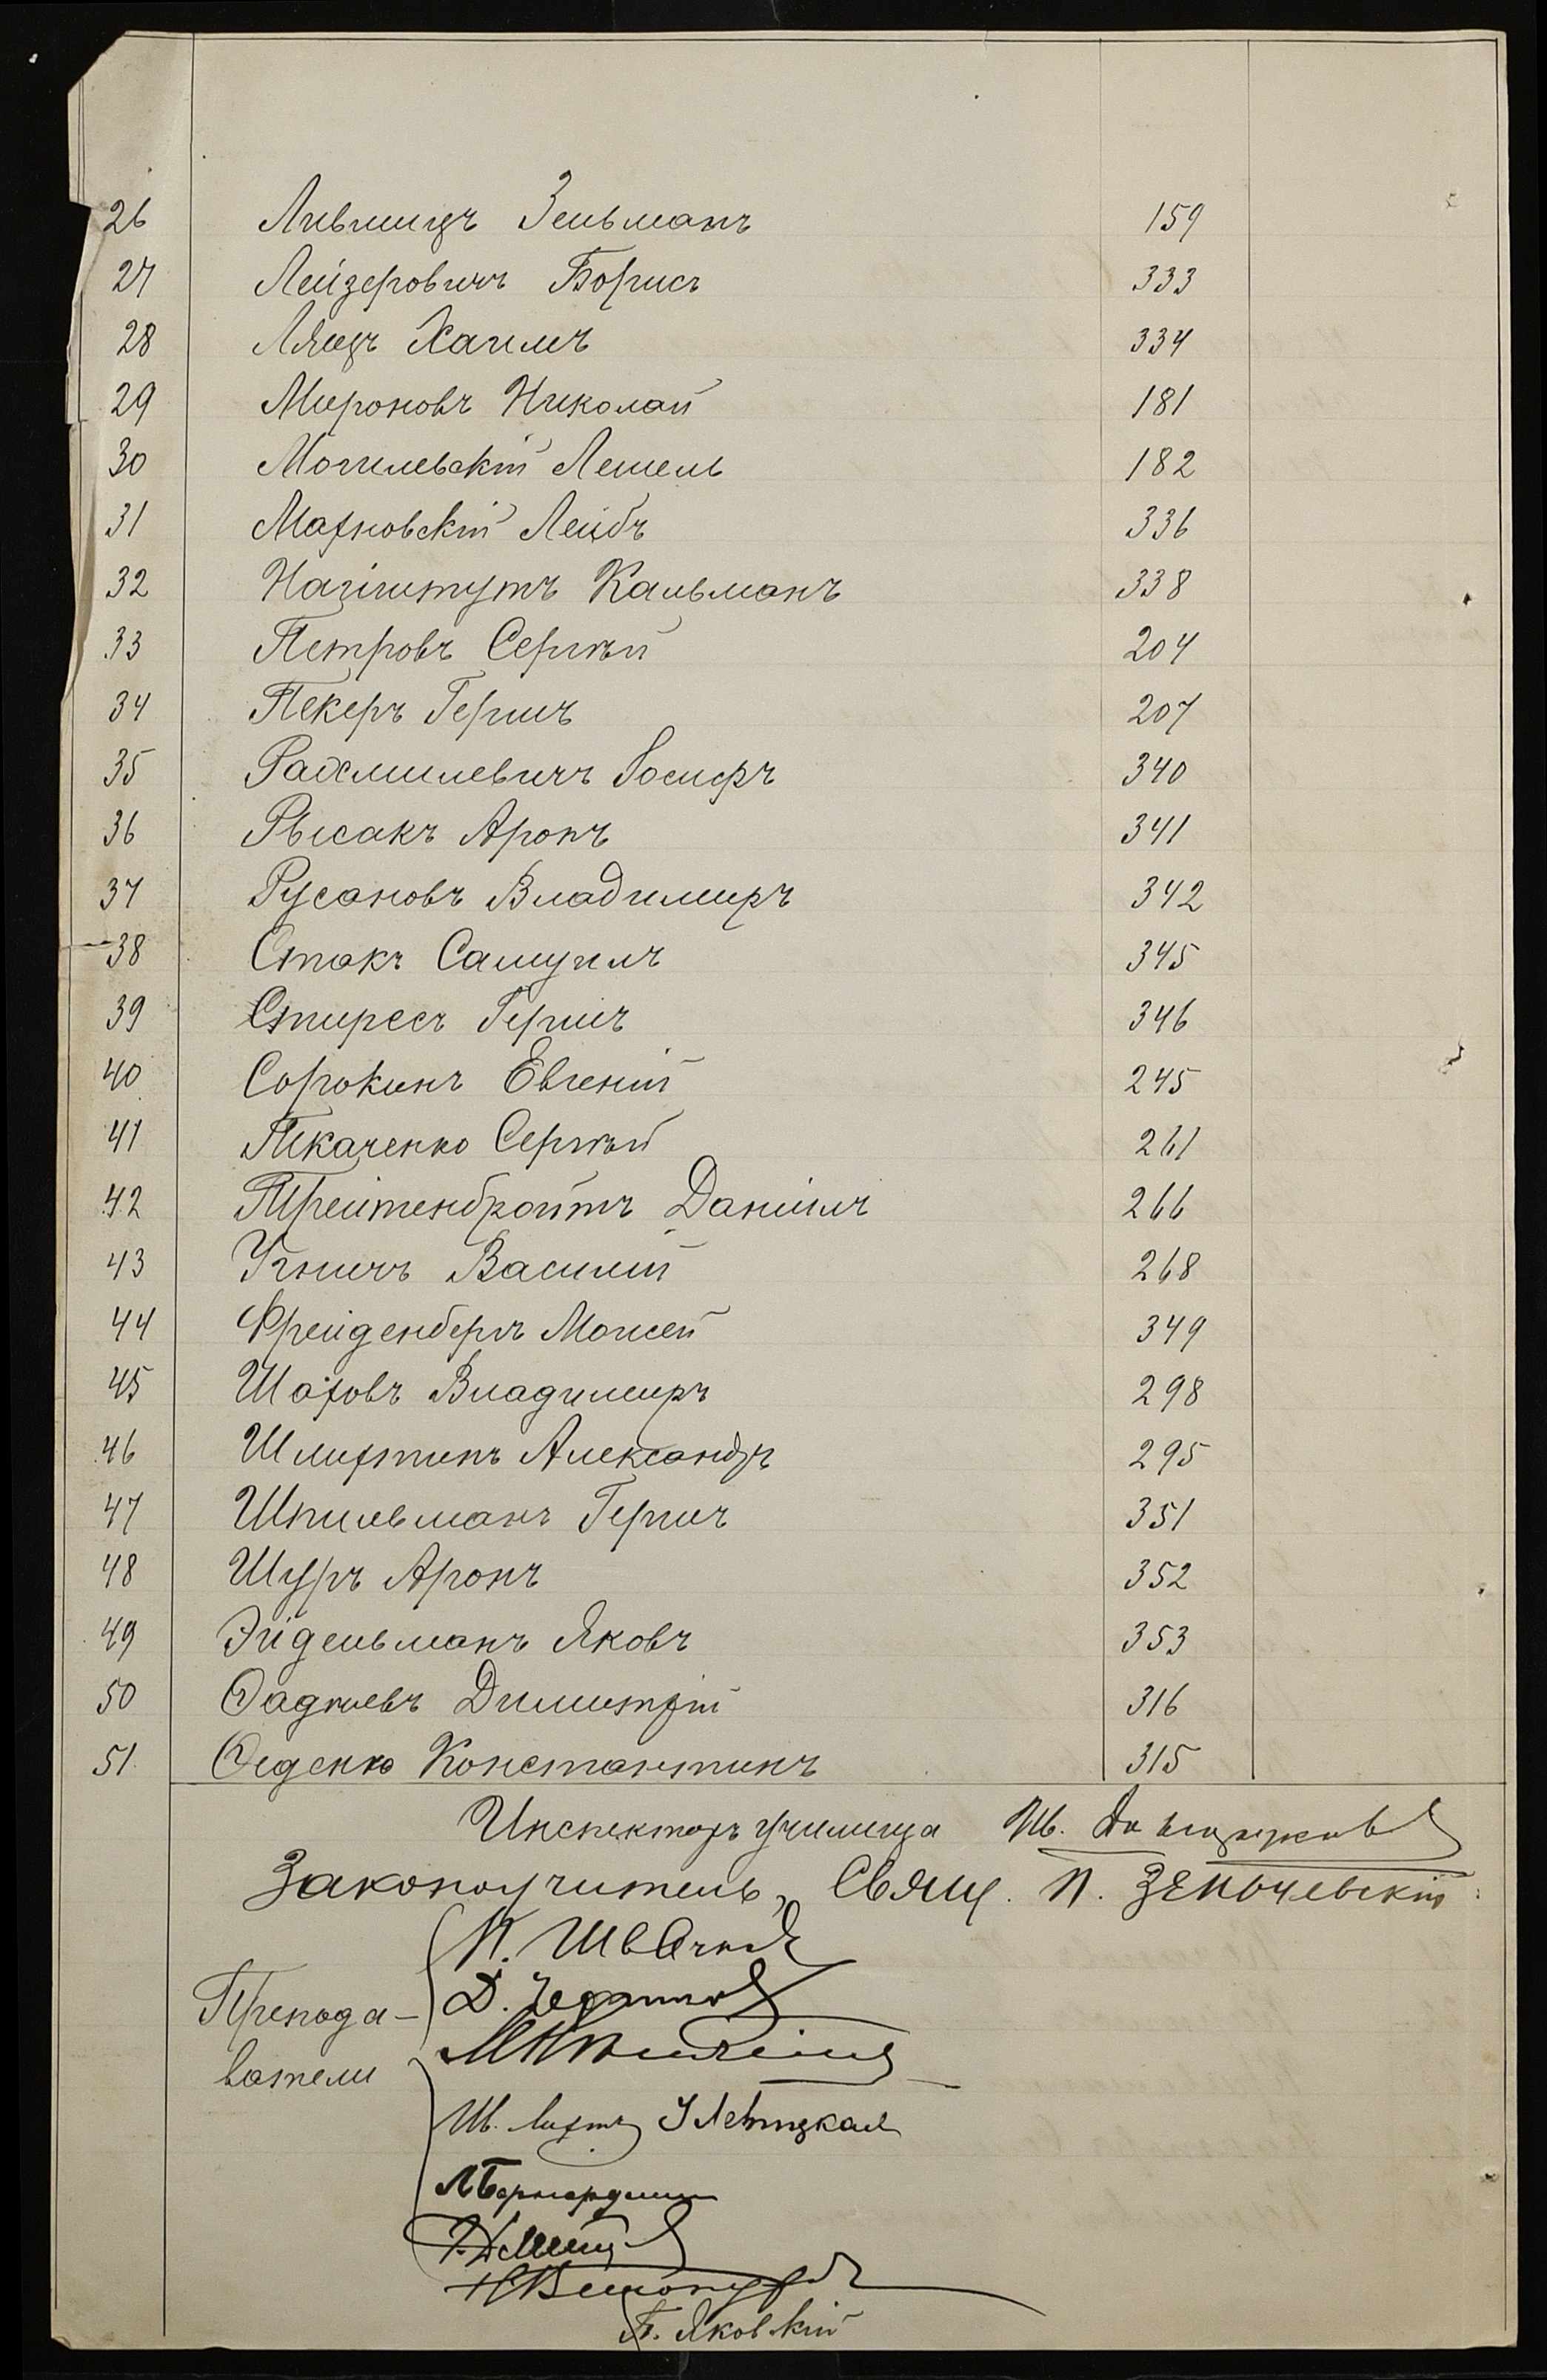 26 Лившицъ Зельманъ 159
27 Лейзеровичъ Борисъ 333
28 Ляцъ Хаимъ 334
29 Мироновъ Николай 181
30 Могилевскій Лешель 182
31 Марковскій Лейбъ 336
32 Кальманъ 338
33 Петровъ Сергѣй 204
34 Пекеръ Гершъ 207
35 Рахмилевичъ Іосифъ 340
36 Рысакъ Аронъ 341
37 Русановъ Владимиръ 342
38 Стакъ Самуилъ 345
39 Спиресъ Гершъ 346
40 Сорокинъ Евгеній 245
41 Ткаченко Сергѣй 261
42 Трейтенбройтъ Даніилъ 266
43 Угничъ Василій 268
44 Фрейденбергъ Моисей 349
45 Шаховъ Владимиръ 298
46 Шлифтинъ Александръ 295
47 Шпильманъ Гершъ 351
48 Шуръ Аронъ 352
49 Эйдельманъ Яковъ 353
50 Ѳадѣевъ Димитрій 316
51 Ѳеденко Константинъ 315
Инспекторъ училища Ив.
Законоучитель, Свящ. П.
Препода-
ватели
Ив.
П. Яковкій